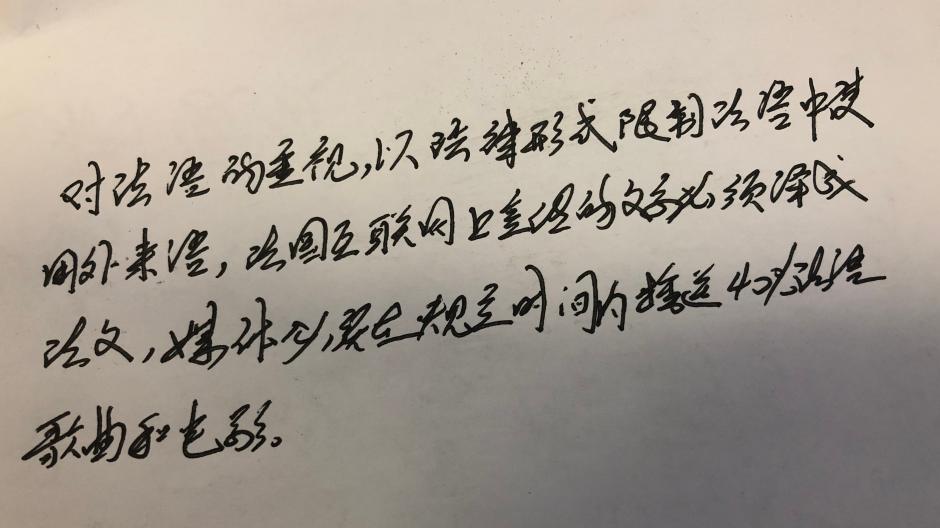 对法语的重视,以法律形式限制法语中使
用外来语,法国互联网上宣传的文字必须译成
法文,媒体必须在规定时间内播送40%法语
歌曲和电影。